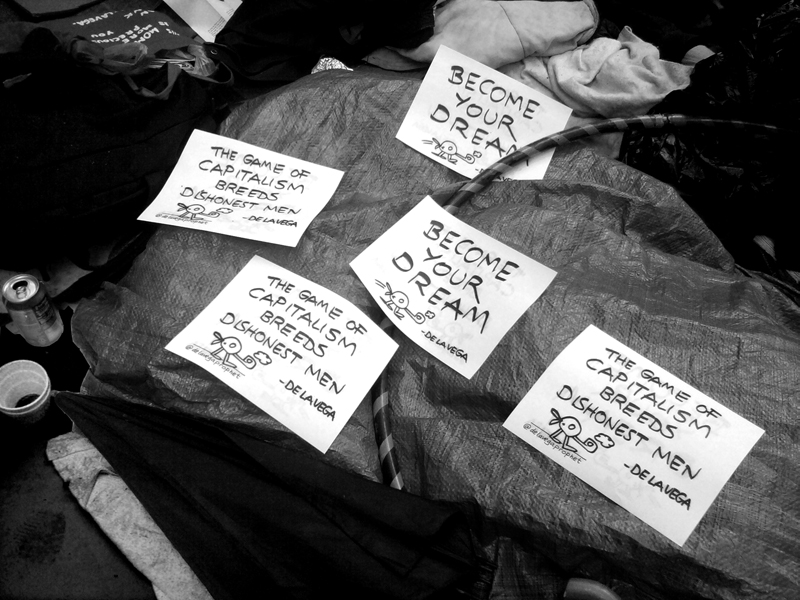 MORE
PRECIOUS
YOU
LAVEGA.
BECOME
YOUR
DREAM
THE GAME OF
CAPITALISM
BREEDS
DISHONEST MEN
-DE LA VEGA
@delavegaprophet
BECOME
YOUR
DREAM
-DE LA VEGA
THE GAME OF
CAPITALISM
BREEDS
DISHONEST MEN
-DE LA VEGA
@delavegaprophet
THE GAME OF
CAPITALISM
BREEDS
DISHONEST MEN
-DE LA VEGA
@delavegaprophet